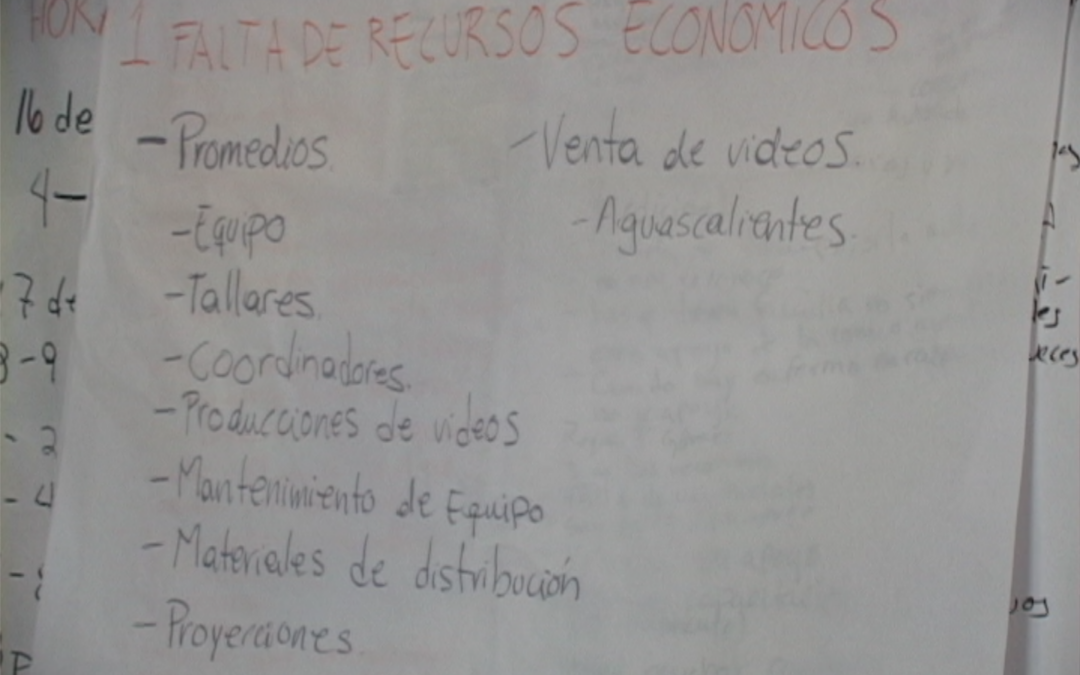 1 FALTA DE RECURSOS ECONOMICOS
- Promedios.
- Equipo
- Tallares.
- Coordinadores.
- Producciones de videos
- Mantenimiento de Equipo
- Materiales de distribución
- Proyecciones.
- Venta de videos.
- Aguascalientes.
16 de
4-
7 de
- 9
- 2
- 4